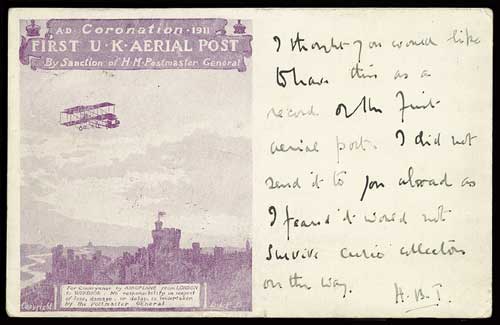 A.D. Coronation · 1911
FIRST U·K·AERIAL POST
By Sanction of H·M·Postmaster General
For Conveyance by AEROPLANE from LONDON
to WINDSOR. No responsibility in respect
of loss, damage, or delay, is undertaken
by the Postmaster General
Copyright
I thought you would like
to have this as a
record of the First
aerial post. I did not
send it to you abroad as
I feared it would not
survive curio collectors
on the way.
H.B.T.